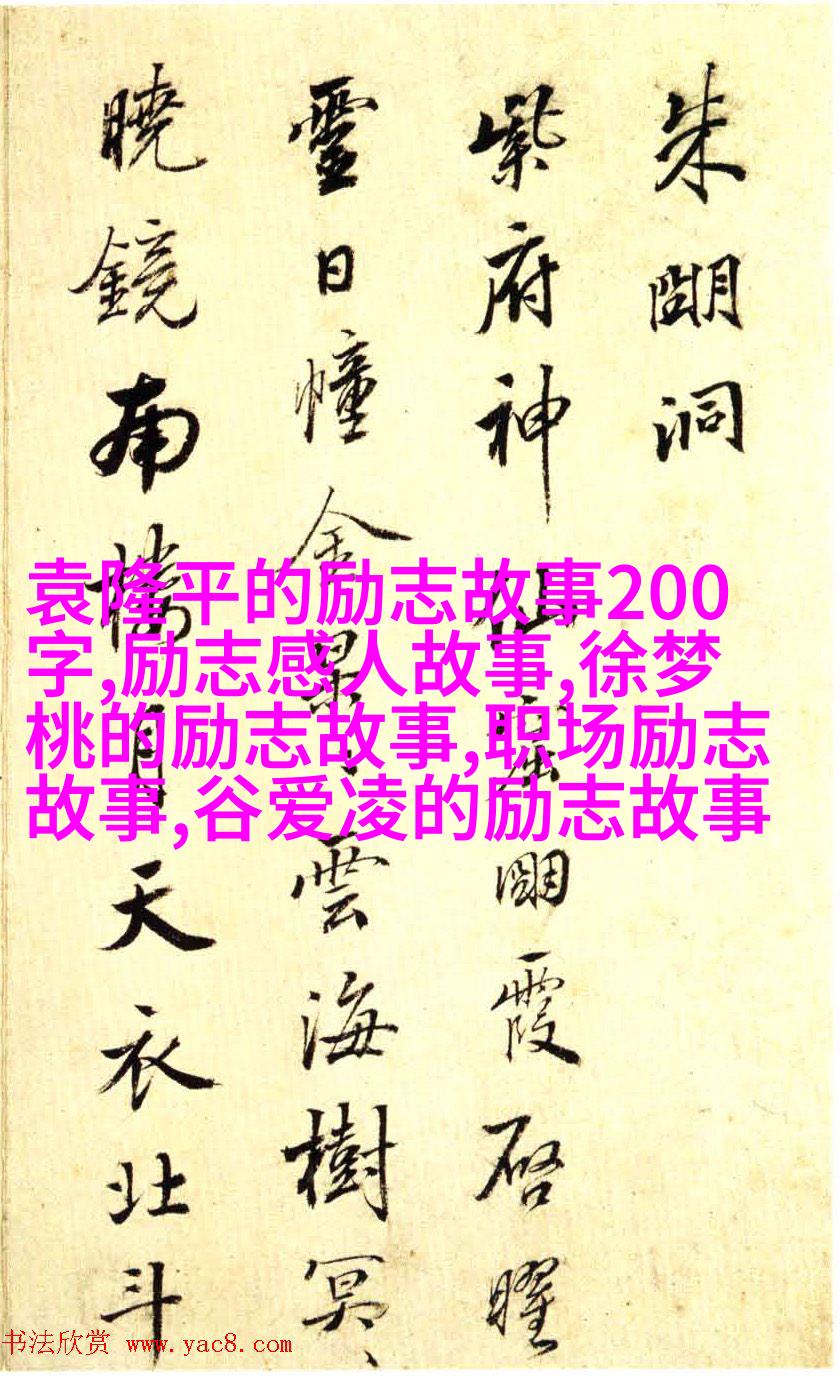 朱朙洞
紫府神仙窟朙霞启曜
靈日幢金景雲海樹冥、
曉鏡南 月天衣北斗
袁隆平的励志故事200
字,励志感人故事,徐梦
桃的励志故事,职场励志
故事,谷爱凌的励志故事
书法欣赏 www.yac8.com